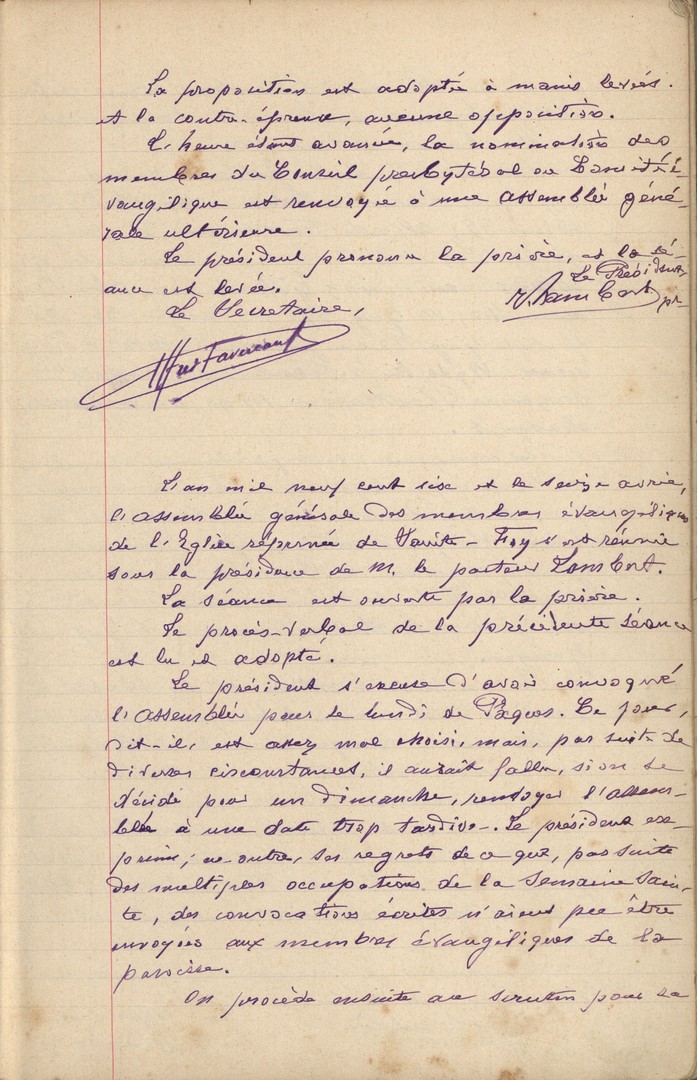 La proposition est adoptée à mains levées.
et la contre-épreuve, aucune opposition.
L'heure étant avancée, la nomination des
membres du Conseil presbytéral ou Comité é-
vangélique est renvoyée à une assemblée géné-
rale ultérieure.
Le président prononce la prière, et la sé-
ance est levée.
Le Président,
Le Secrétaire,
L'an mil neuf cent six et le seize avril,
l'assemblée générale des membres évangéliques
de l'Eglise réformée de Sainte-Foy s'est réunie
sous la présidence de M. le pasteur Lambert.
La séance est ouverte par la prière.
Le procès-verbal de la précédente séance
est lu et adopté.
Le président s'excuse d'avoir convoqué
l'assemblée pour le lundi de Pâques. Ce jour,
dit-il, est assez mal choisi, mais, par suite de
diverses circonstances, il aurait fallu, si on se
décidé pour un dimanche, renvoyer l'assem-
blée à une date trop tardive. Le président ex-
prime, en outre, ses regrets de ce que, par suite
des multiples occupations de la semaine sain-
te, des convocations écrites n'aient pu être
envoyées aux membres évangéliques de la
paroisse.
On procède ensuite au scrutin pour la